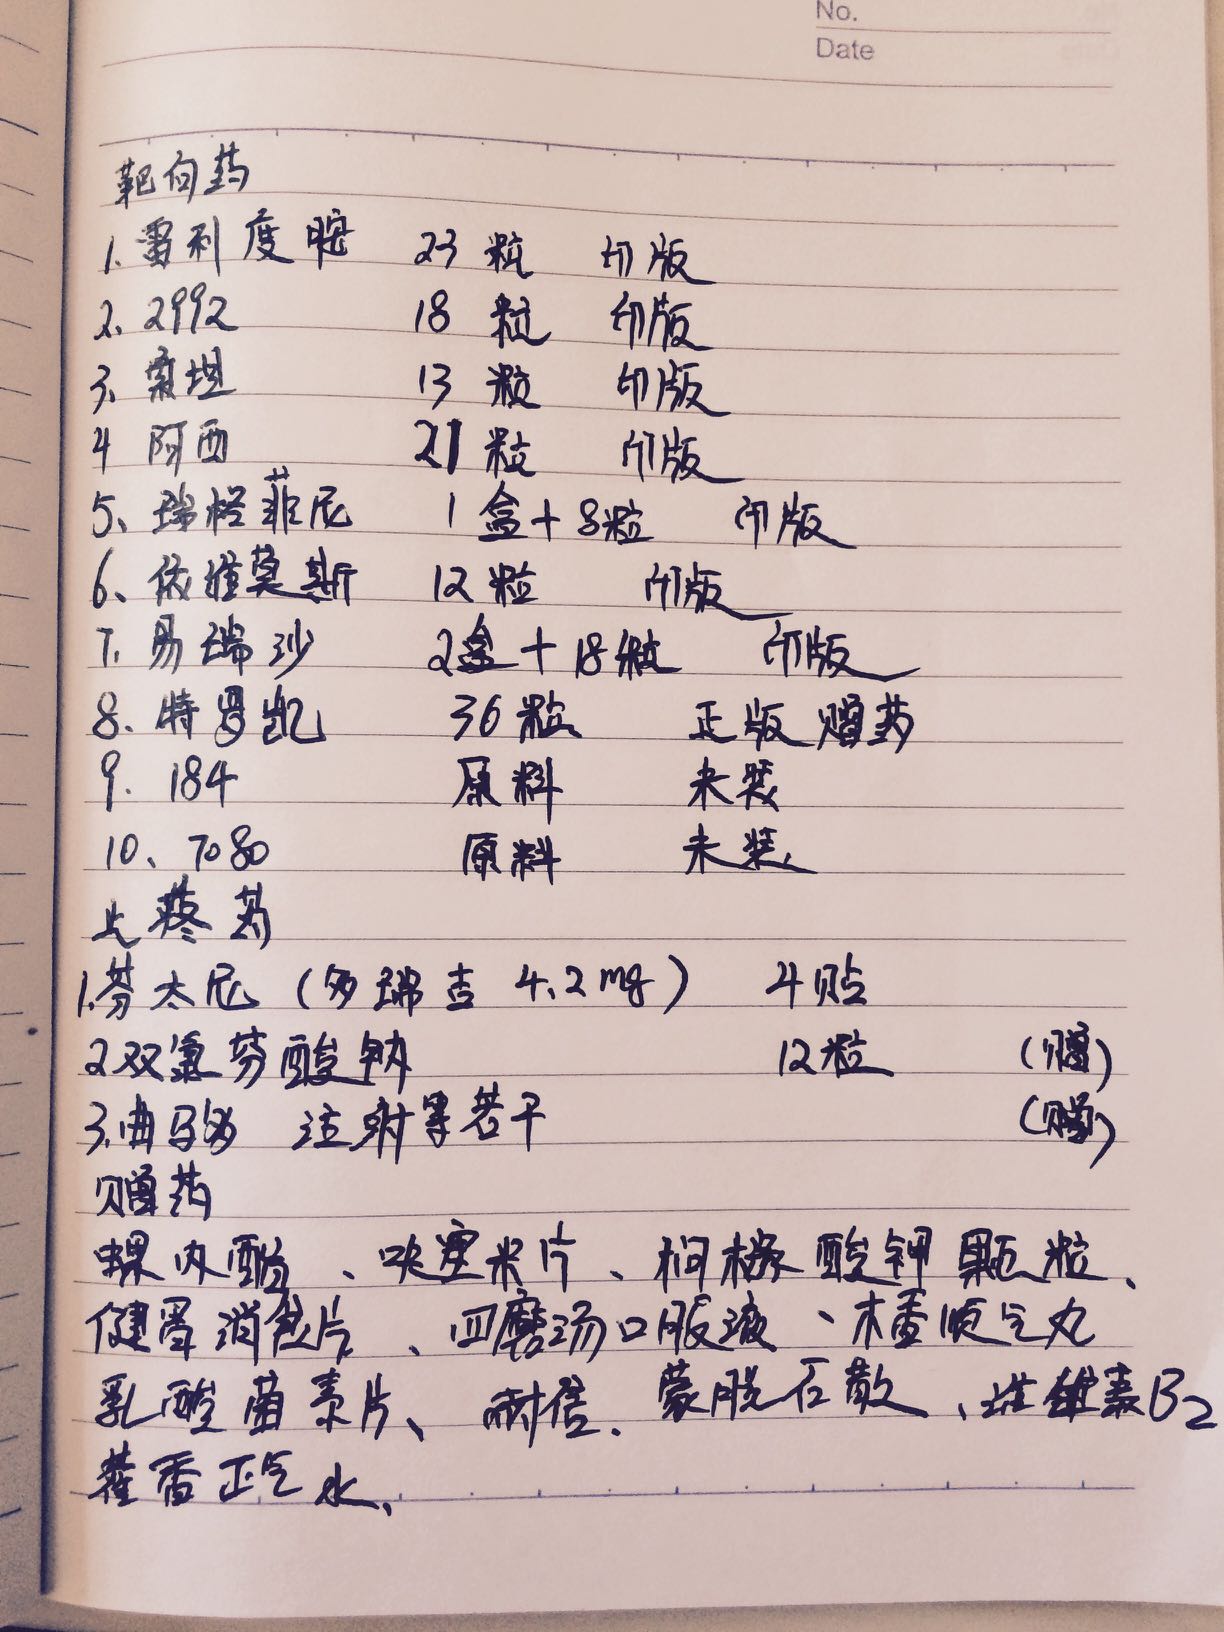 No.
Date
靶向药
1. 雷利度胺 23 粒 印版
2、2992 18 粒 印版
3、索坦 13 粒 印版
4 阿西 21 粒 印版
5、瑞格菲尼 1 盒+8粒 印版
6、依维莫斯 12 粒 印版
7. 易瑞沙 2盒+18粒 印版
8. 特罗凯 36 粒 正版 赠药
9. 184 原料 未装
10、7080 原料 未装
止疼药
1.芬太尼 (多瑞吉 4.2mg) 4贴
2双氯芬酸钠 12粒 (赠)
3.曲马多 注射等若干 (赠)
赠药
螺内酯、呋塞米片、枸橼酸钾颗粒、
健胃消食片、四磨汤口服液、木香顺气丸
乳酸菌素片、耐信、蒙脱石散、维生素B2
藿香正气水、